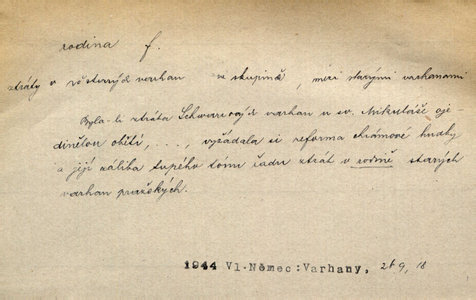 rodina f.
ztráty v věstných varhan ve skupině, mezi starými varhanami.
Byla-li ztráta Schwarzových varhan u sv. Mikuláše oje-
dinělou obětí, ..., vyžádala si reforma chrámové hudby
a její záliba tupého tónu řadu ztrát v rodině starých
varhan pražských.
1944 Vl.Němec:Varhany, 9, 18